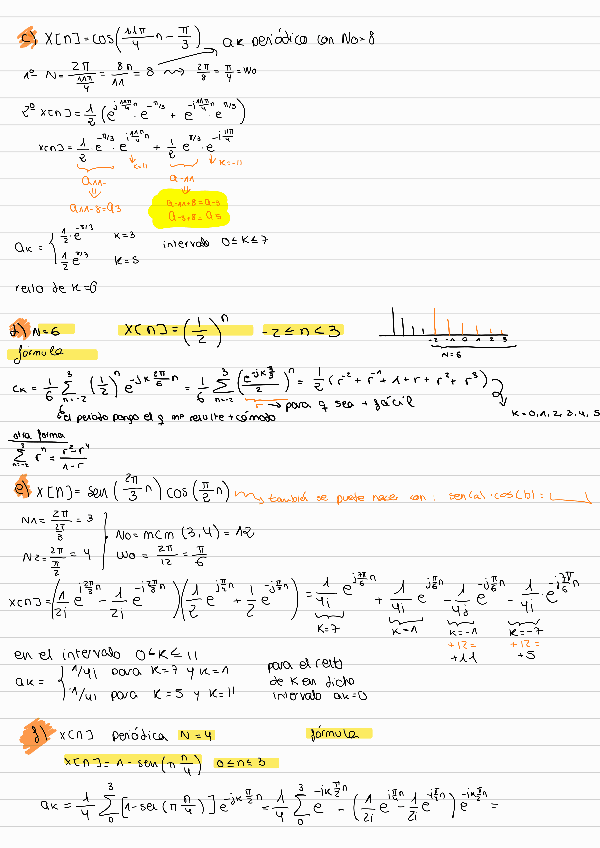 c) X[n] = cos(11π/4 n - π/3) ak periódica con No=8
1º N = 2π/(11π/4) = 8n/11 = 8 ⇝ 2π/8 = π/4 = Wo
2º x[n] = 1/2 (e^(j11π/4 n) · e^(-π/3) + e^(-j11π/4 n) · e^(π/3))
x[n] = 1/2 e^(-π/3) · e^(j11π/4 n) + 1/2 e^(π/3) · e^(-j11π/4)
k=11 k=-11
a11 a-11
a11-8 = a3
a-11+8 = a-3
a-3+8 = a5
ak = { 1/2 · e^(-π/3) k=3
1/2 e^(π/3) k=5
intervalo 0≤k≤7
resto de k=0
d) N=6 X[n] = (1/2)^n -2≤n≤3
fórmula
-2 -1 0 1 2 3
N=6
ck = 1/6 Σ(n=-2, 3) (1/2)^n e^(-jk 2π/6 n) = 1/6 Σ(n=-2, 3) (e^(-jk π/3)/2)^n = 1/2 (r^-2 + r^-1 + 1 + r + r^2 + r^3)
r → para q sea + fácil
el periodo pongo el q me resulte + cómodo
k=0,1,2,3,4,5
otra forma
Σ(n=-2, 3) r^n = (r^-2 - r^4)/(1-r)
e) X[n] = sen(2π/3 n) cos(π/2 n) también se puede hacer con sen(a)·cos(b) =
N1 = 2π/(2π/3) = 3
N2 = 2π/(π/2) = 4
No = mcm (3,4) = 12
Wo = 2π/12 = π/6
x[n] = (1/2j e^(j2π/3 n) - 1/2j e^(-j2π/3 n))(1/2 e^(jπ/2 n) + 1/2 e^(-jπ/2 n)) = 1/4j e^(j7π/6 n) + 1/4j e^(jπ/6 n) - 1/4j e^(-jπ/6 n) - 1/4j · e^(-j7π/6 n)
k=7 k=1 k=-1 k=-7
+12= +12=
+11 +5
en el intervalo 0≤k≤11
ak = { 1/4j para k=7 y k=1
-1/4j para k=5 y k=11
para el resto
de k en dicho
intervalo ak=0
f) x[n] periódica N=4 fórmula
x[n] = 1 - sen(π n/4) 0≤n≤3
ak = 1/4 Σ(0, 3) [1-sen(π n/4)] e^(-jk π/2 n) = 1/4 Σ(0, 3) e^(-jk π/2 n) - (1/2j e^(jπ/4 n) - 1/2j e^(-jπ/4 n)) e^(-jk π/2 n) =